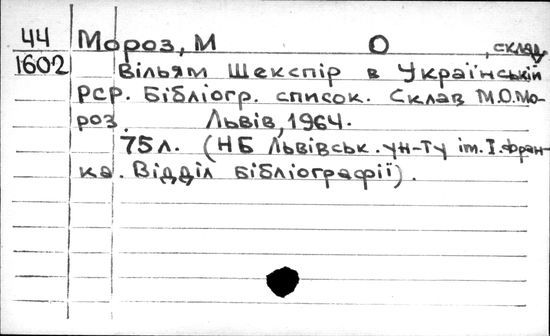 44 Мороз, М О , склад.
1602 Вільям Шекспір в Українській
РСР. Бібліогр. список. Склав М.О.Мо-
роз. Львів, 1964.
75л. (НБ Львівськ. ун-ту ім. І. Фран-
ка. Відділ бібліографії).